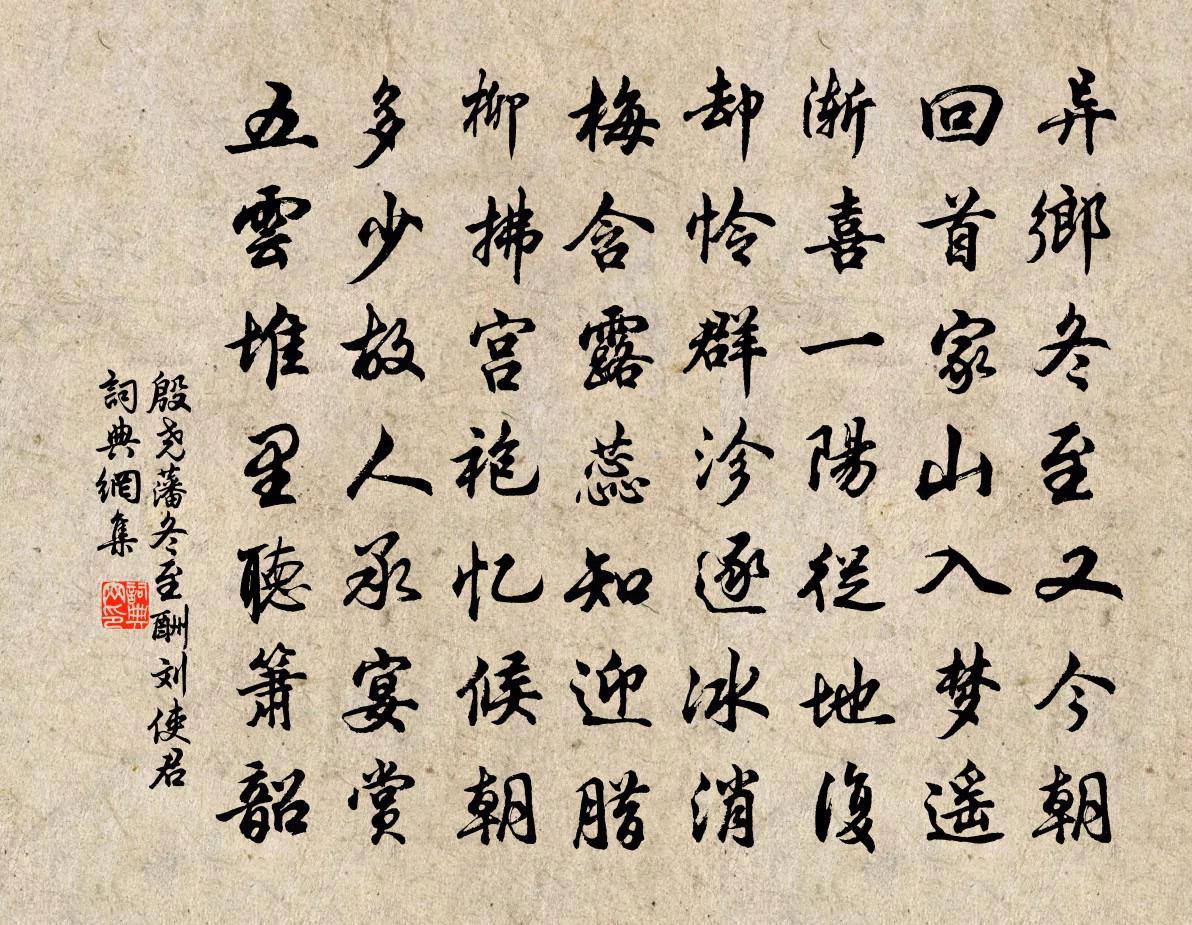 异鄉冬至又今朝
回首家山入梦遥
渐喜一陽從地復
却怜群沴逐冰消
梅含露蕊知迎腊
柳拂宫袍忆候朝
多少故人承宴赏
五雲堆里聴箫韶
殷尧藩冬至酬刘使君
詞典網集